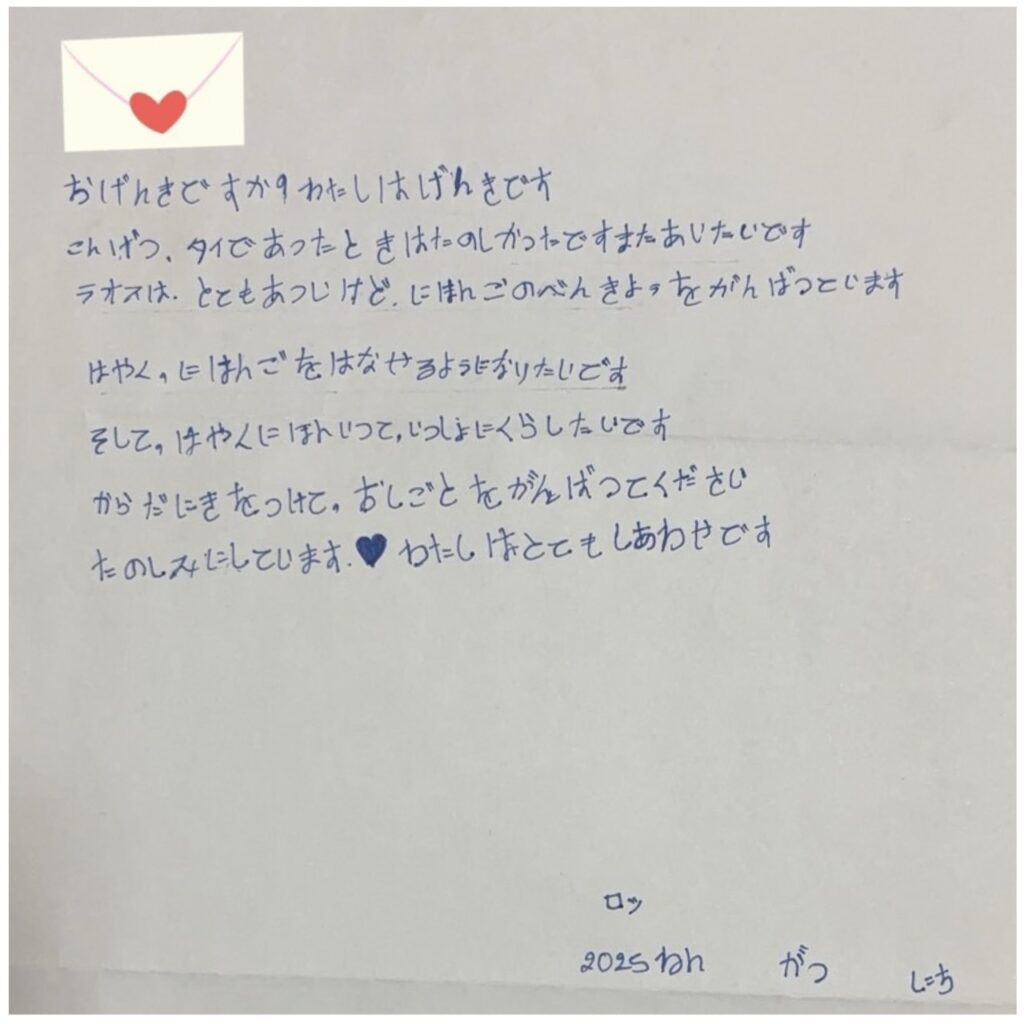 おげんきですか?わたしはげんきです
こんげつ、タイであったときはたのしかったですまたあいたいです
ラオスは、とてもあついけど、にほんごのべんきょうをがんばっています
はやく、にほんごをはなせるようになりたいです
そして、はやくにほんいって、いっしょにくらしたいです
からだにきをつけて。おしごとをがんばってください
たのしみにしています.♥わたしはとてもしあわせです
ロッ
2025ねん がつ にち